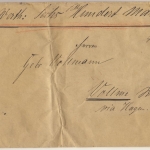 Werth: Sechs Hundert Mark
Herrn
Gebr. Vollmann
Vollme
via Hagen